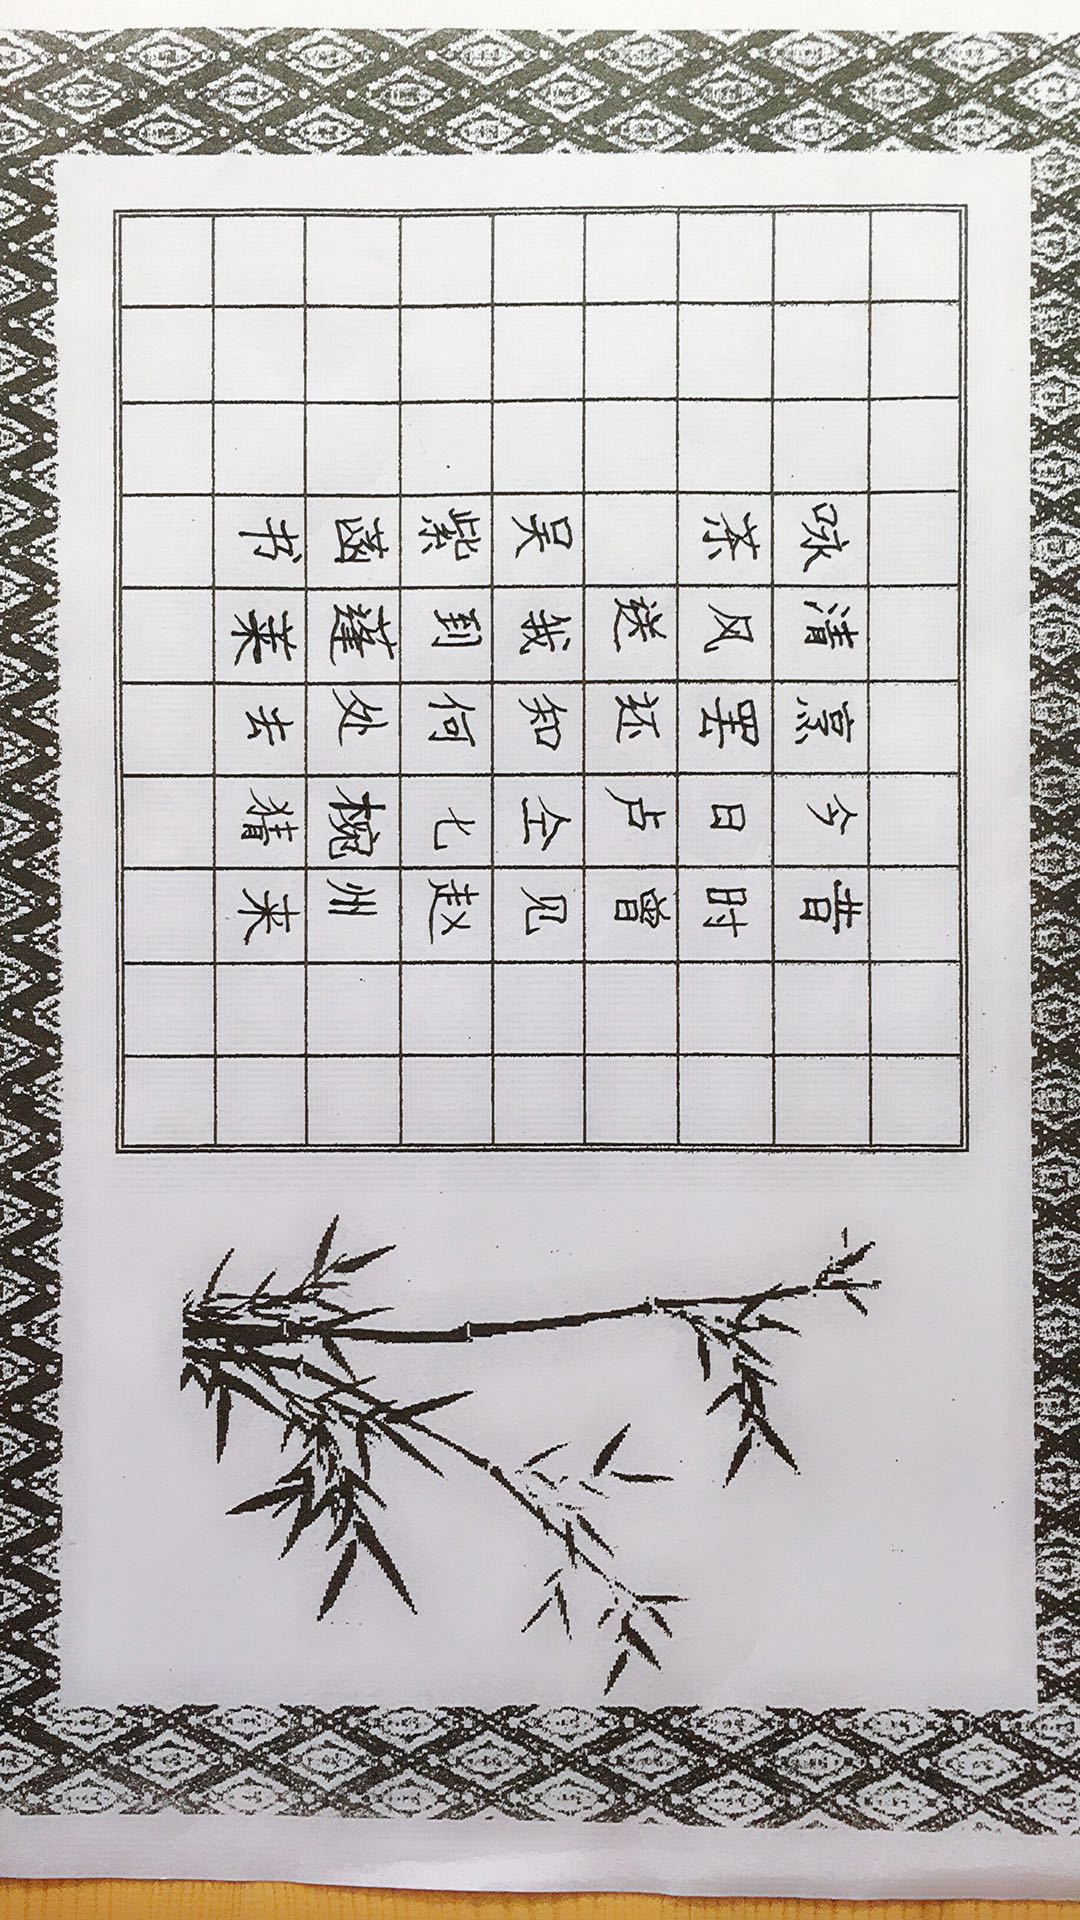 昔时曾见赵州来
今日卢仝七椀猜
烹罢还知何处去
清风送我到蓬莱
咏茶 吴紫菡书